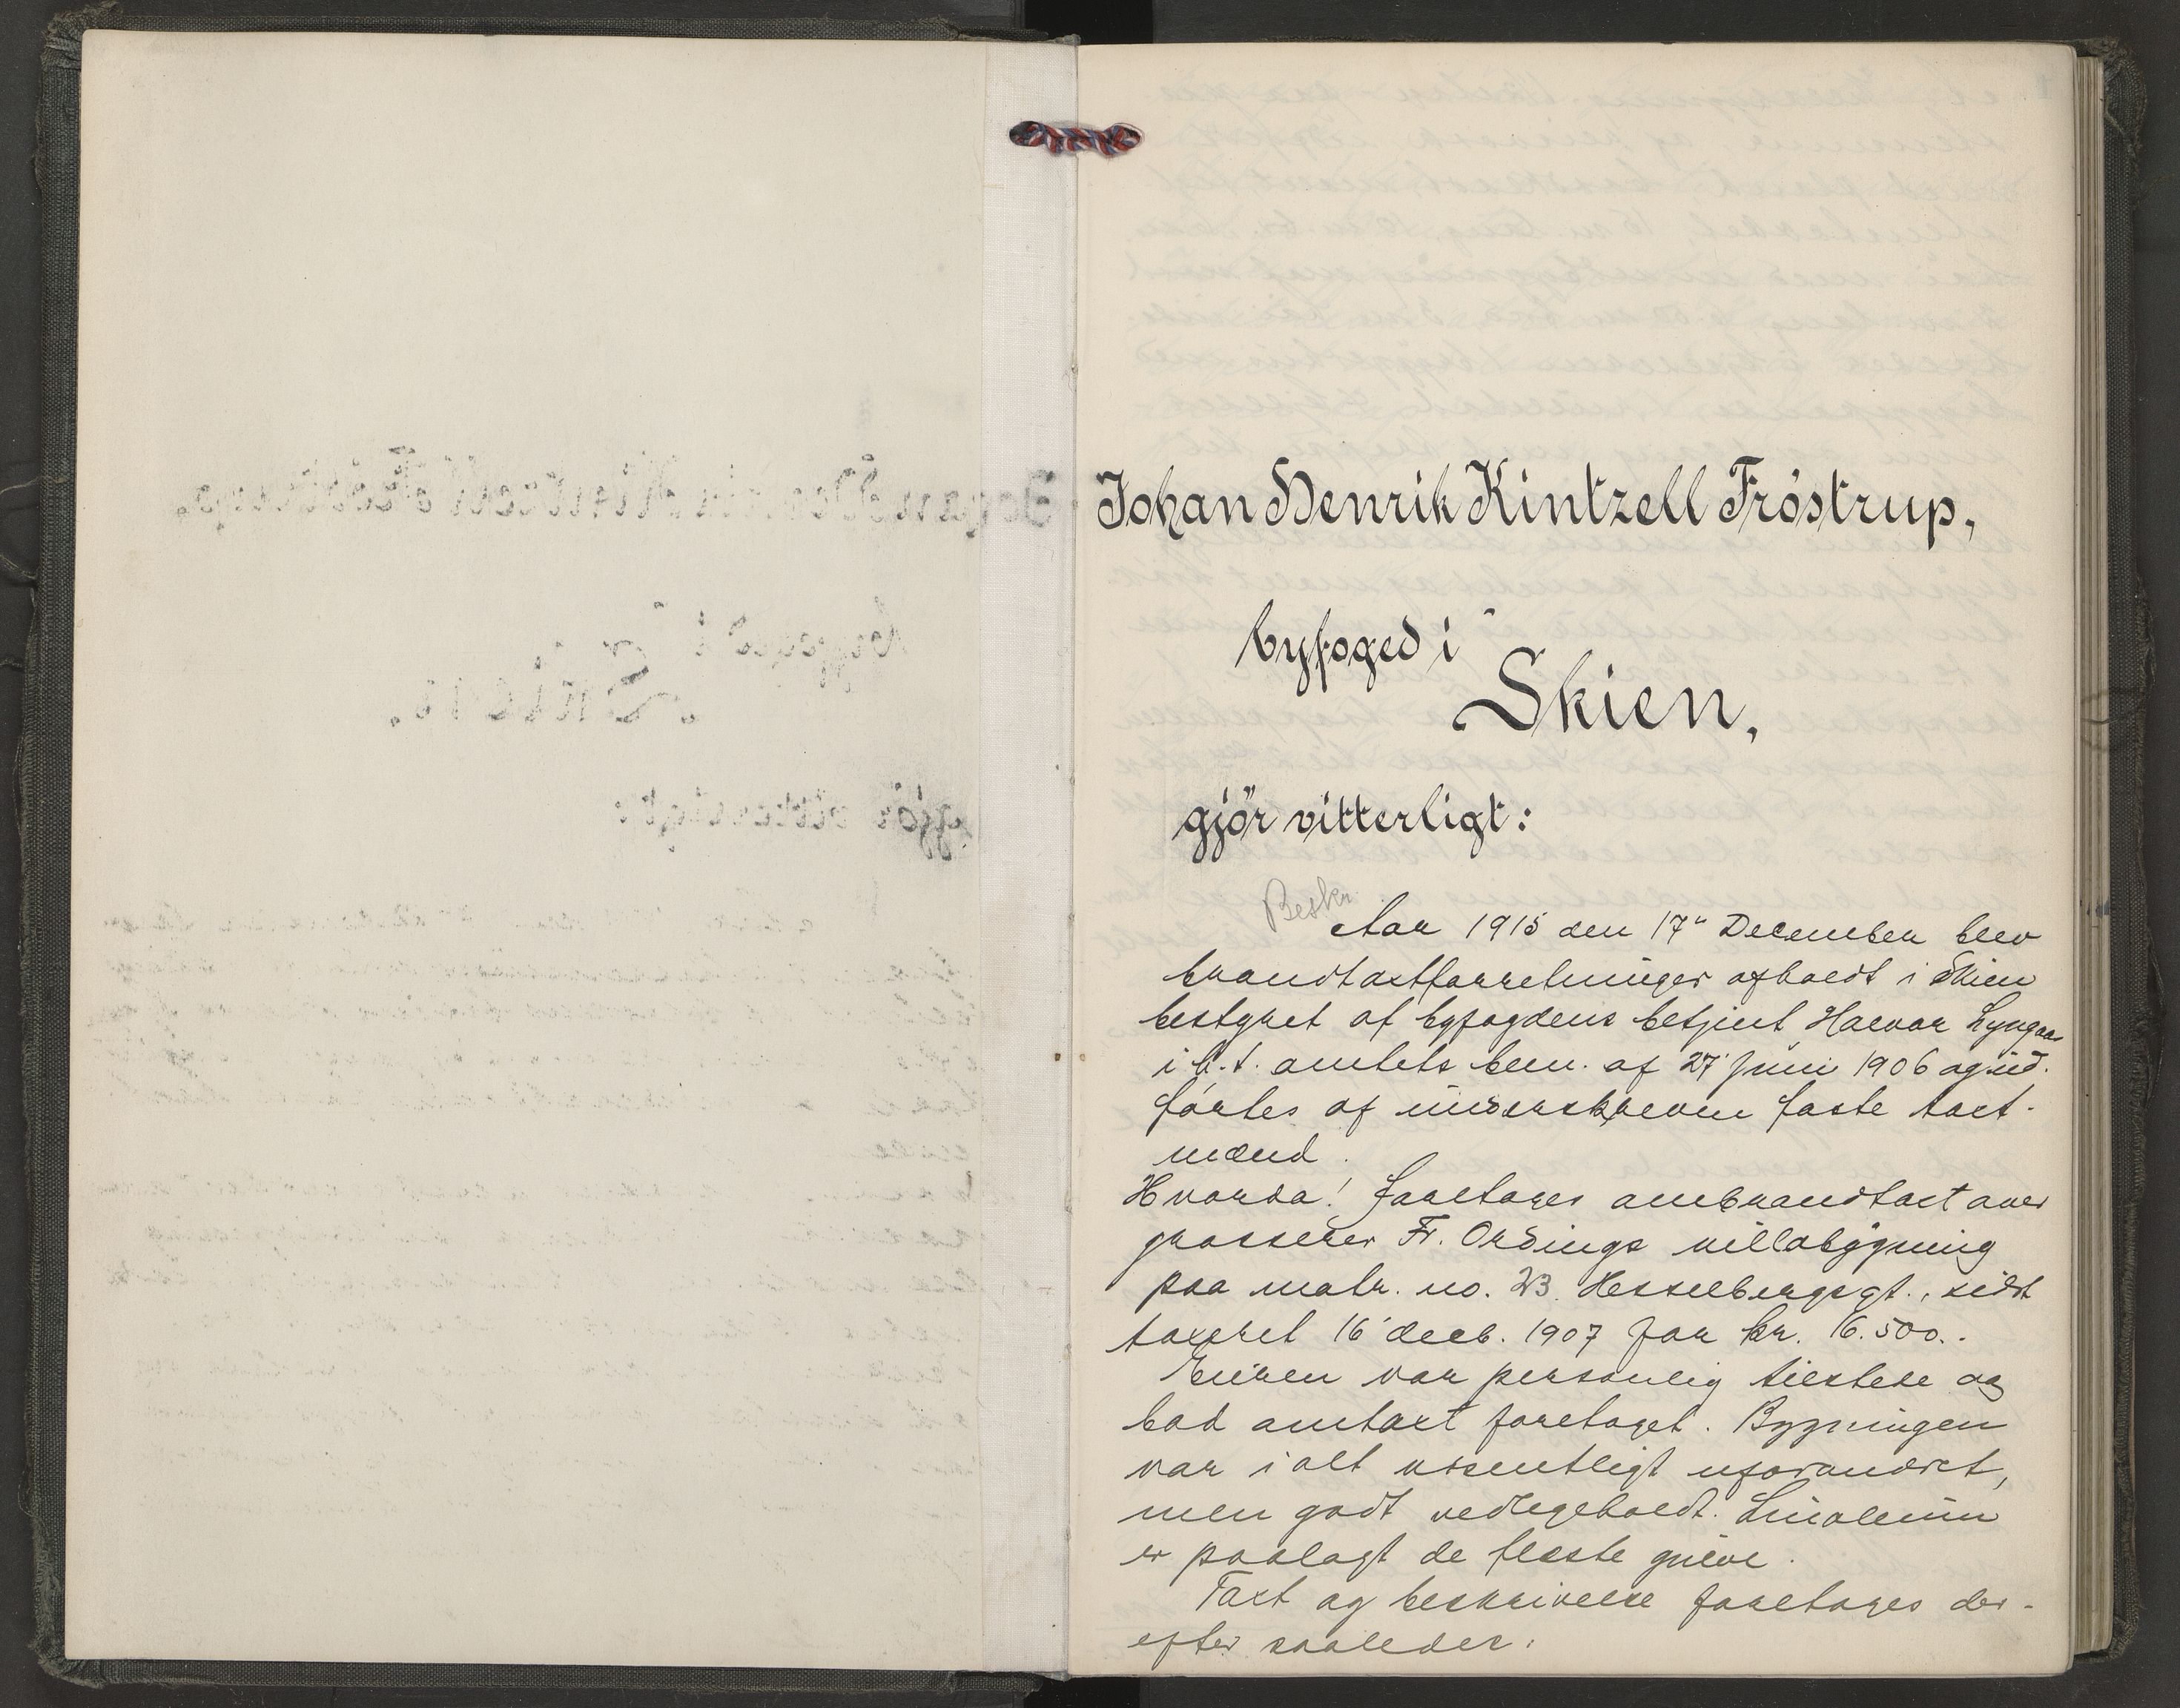 Johan Henrik Kintzell Fröstrup,
byfoged i
Skien,
gjör vitterligt:
Beskr.
Aar 1915 den 17de December blev
brandtaxtforretninger afholdt i Skien
bestyret af byfogdens betjent Halvor Lyngaas
i h. t. amtets bem. af 27' juni 1906 og ud-
förtes af underskrevne faste taxt-
mænd.
Hvorda! foretoges ombrandtaxt over
grosserer Fr. Ordings villabygning
paa matr. no. 23 Hesselbergsgt., sidst
taxeret 16' decb. 1907 for kr. 16.500..
Eieren var personlig tilstede og
bad omtaxt foretaget. Bygningen
var i alt væsentligt uforandret,
men godt vedligeholdt. Linoleum
er paalagt de fleste gulve.
Taxt og beskrivelse foretoges der-
efter saaledes: